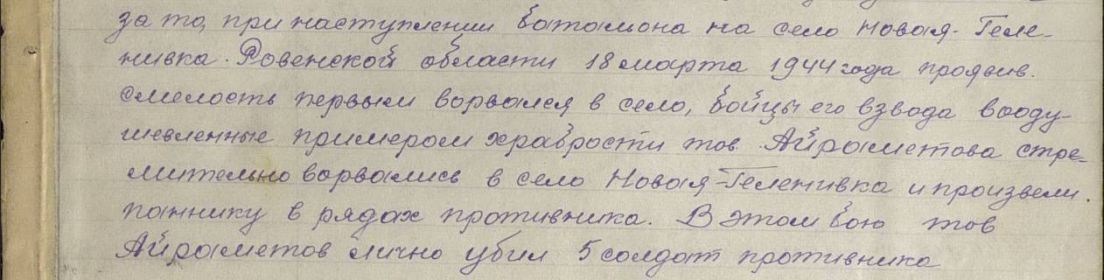 за то, при наступлении батальона на село Новая-Геле-
нивка. Ровенской области 18 марта 1944 года проявив.
смелость первым ворвался в село, бойцы его взвода вооду-
шевленные примером храбрости тов. Айраметова стре-
мительно ворвались в село Новая-Геленивка и произвели.
паннику в рядах противника. В этом бою тов
Айраметов лично убил 5 солдат противника